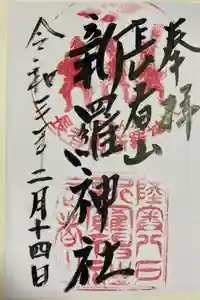 奉拝
長者山
新羅神社
令和三年二月十四日